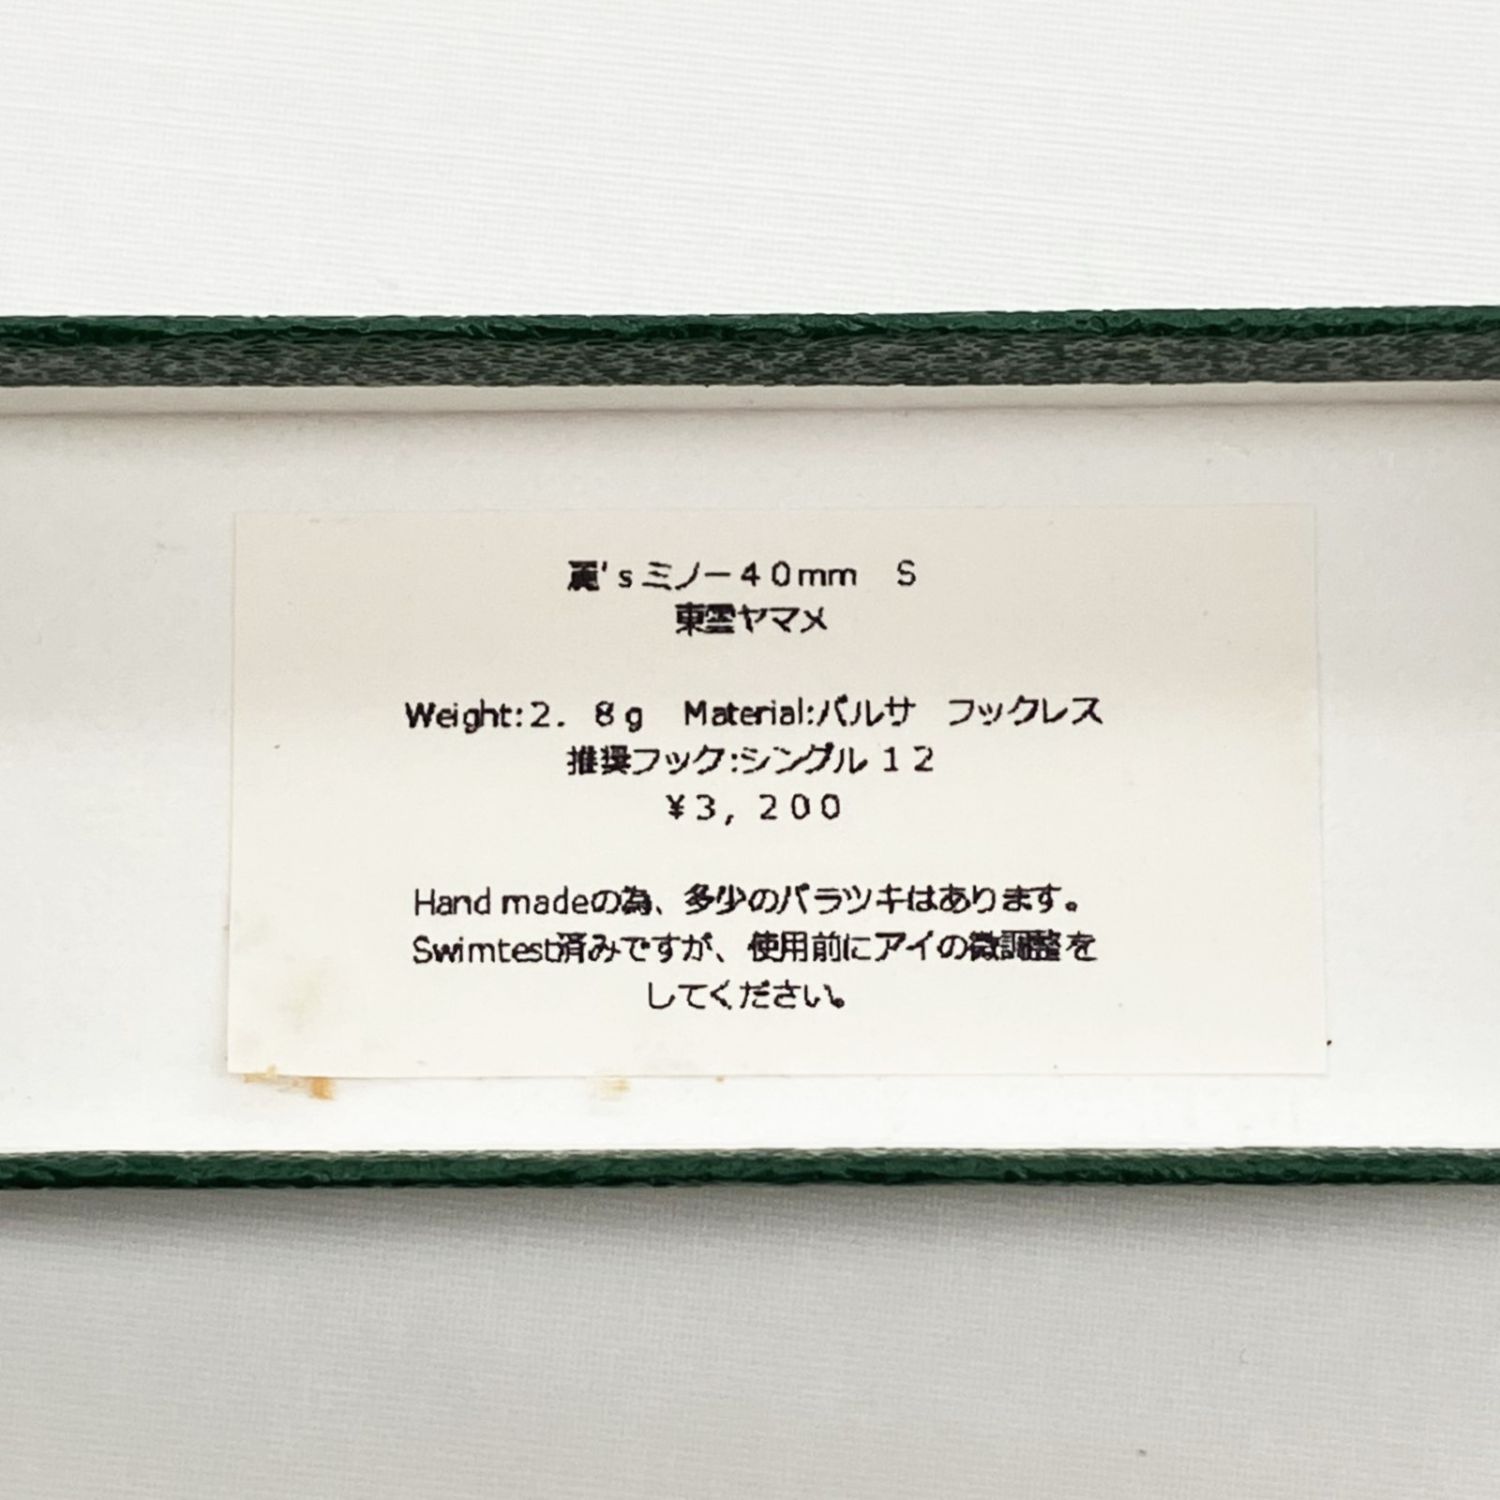 麗'sミノー40mm S
東雲ヤマメ
Weight:2. 8g Material:バルサ フックレス
推奨フック:シングル 12
¥3, 200
Hand madeの為、多少のバラツキはあります。
Swimtest済みですが、使用前にアイの微調整を
してください。